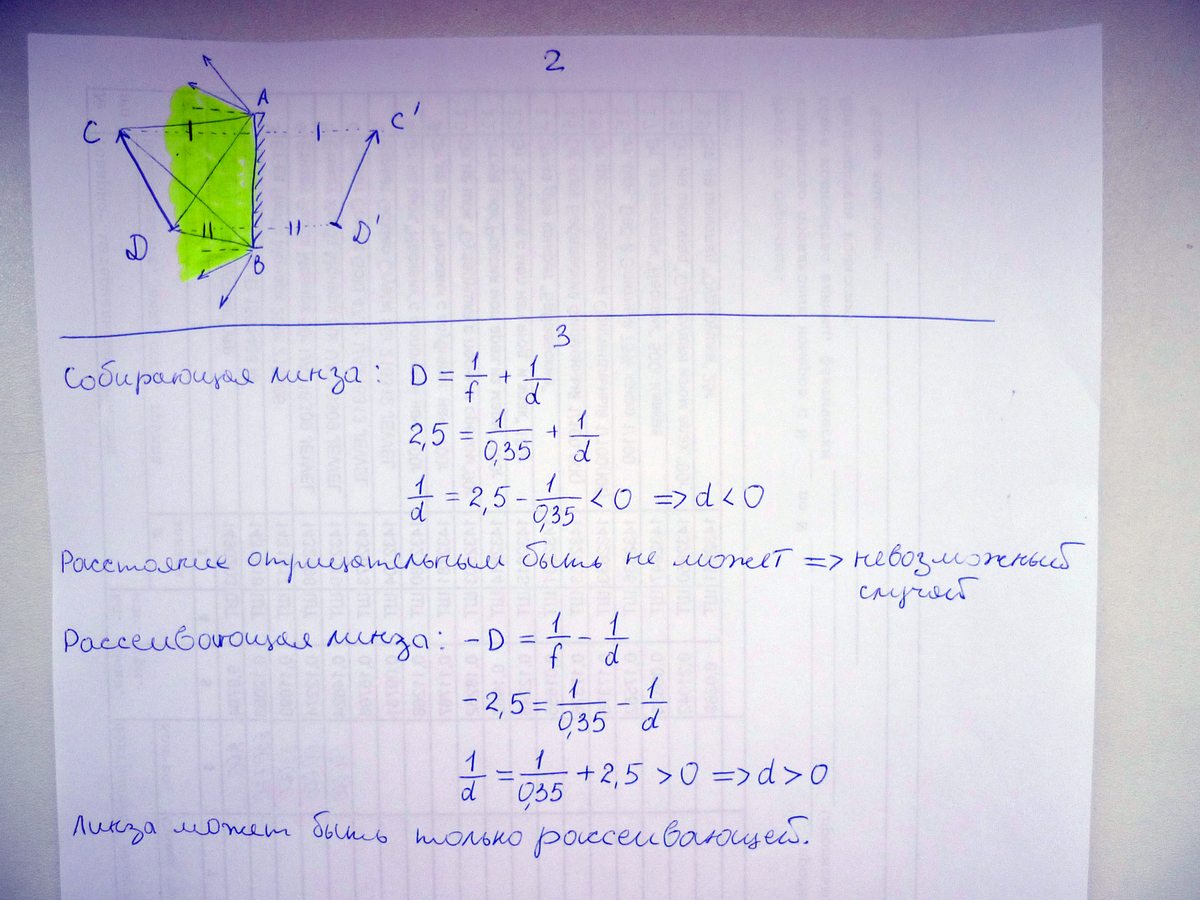 2
A
C
C'
D
D'
B
3
Собирающая линза: D = 1/f + 1/d
2,5 = 1/0,35 + 1/d
1/d = 2,5 - 1/0,35 < 0 => d < 0
Расстояние отрицательным быть не может => невозможный
случай
Рассеивающая линза: -D = 1/f - 1/d
-2,5 = 1/0,35 - 1/d
1/d = 1/0,35 + 2,5 > 0 => d > 0
Линза может быть только рассеивающей.